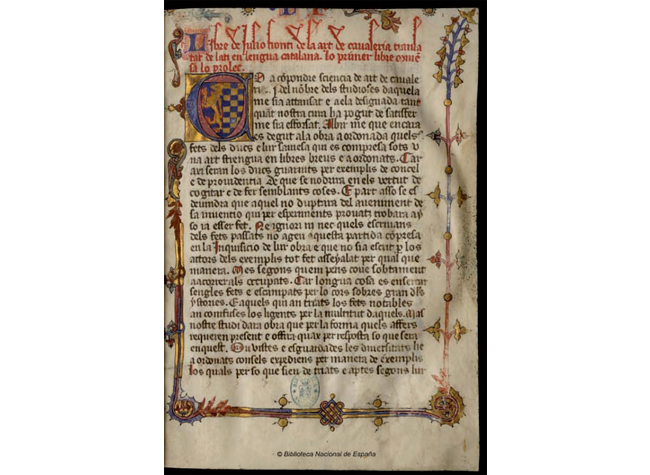 Libre de Julio fronti de la art de caualeria transla
tat de lati en lengua catalana. Lo primer libre comẽse
sa lo prolec.
D a cõpondre sciencia de art de cauale
ria del nõbre dels studioses daquela
me sia attansat e a ela designada tant
quãt nostra cura ha pogut de satisfer
me sia efforsat. Albir me que encara
es degut a la obra a ordonada quels
fets dels ducs e lur sauiesa qui es compresa sots v
na art strenga en libres breus e a ordonats. Car
axi seran los ducs guarnits per exemplis de concel
e de prouidentia De que se nodrira en els vertut de
cogitar e de fer semblants coses. E part asso se es
deuendra que aquel no duptara del aueniment de
sa inuentio qui per esperiments prouats trobara ay
so ia esser fet. Ne ignor ni nec quels escriuans
dels fets passats no agen aquesta partida cõpresa
en la Inquisicio de lur obra e que no sia escrit p los
actors dels exemplis tot fet asseyalat per qual que
manera. Mes segons quem pens coue sobtament
a acorrer als occupats. Car longua cosa es
sengles fets e escampats per lo cors sobres gran dls
ystories. E aquels qui an triats los fets notables
an confuses los ligents per la multitut daquels. Mas
nostre studi dara obra que per la forma quels affers
requeren present e offira quax per resposta so que sera
enquest. On vistes e esguardades les diuersitats he
a ordonats consels expediens per manera de exemplis
los quals per so que sien de triats e aptes segons lur
© Biblioteca Nacional de España